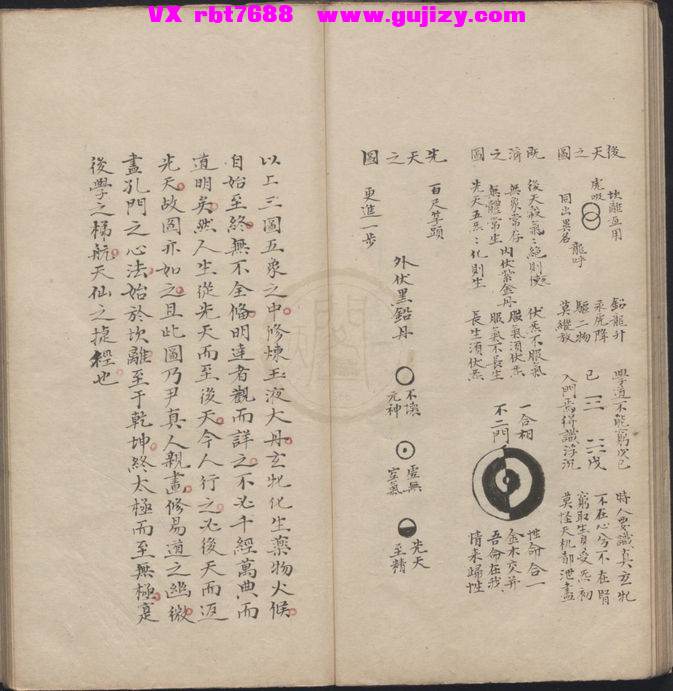 VX rbt7688 www.gujizy.com
後天之圖
坎離無用
虎吸
龍呼
同出異名
鉛龍升
汞虎降
驅二物
莫縱放
學道不能窮戊己
己 戊
入門焉得識浮沉
時人要識真玄牝
不在心兮不在腎
窮取生身受炁初
莫怪天机都泄盡
既濟之圖
後天殺氣氣絕則
無象常存
內伏紫金丹
無體常生
先天五炁炁化則生
伏炁不服氣
服氣須伏炁
服氣不長生
長生須伏炁
一合相
不二門
性命合一
金木交并
吾命在我
情來歸性
先天之圖
百尺竿頭
更進一步
外伏黑鉛丹
不壞
元神
虛無
空氣
先天
至精
以上三圖五象之中修煉玉液大丹玄牝化生藥物火候
自始至終無不全備明達者觀而詳之不必千經萬典而
道明矣然人生從先天而至後天今人行之必後天而返
先天故圖亦如之且此圖乃尹真人親畫修易道之幽微
盡孔門之心法始於坎離至于乾坤終太極而至無極寔
後學之梯航天仙之捷徑也